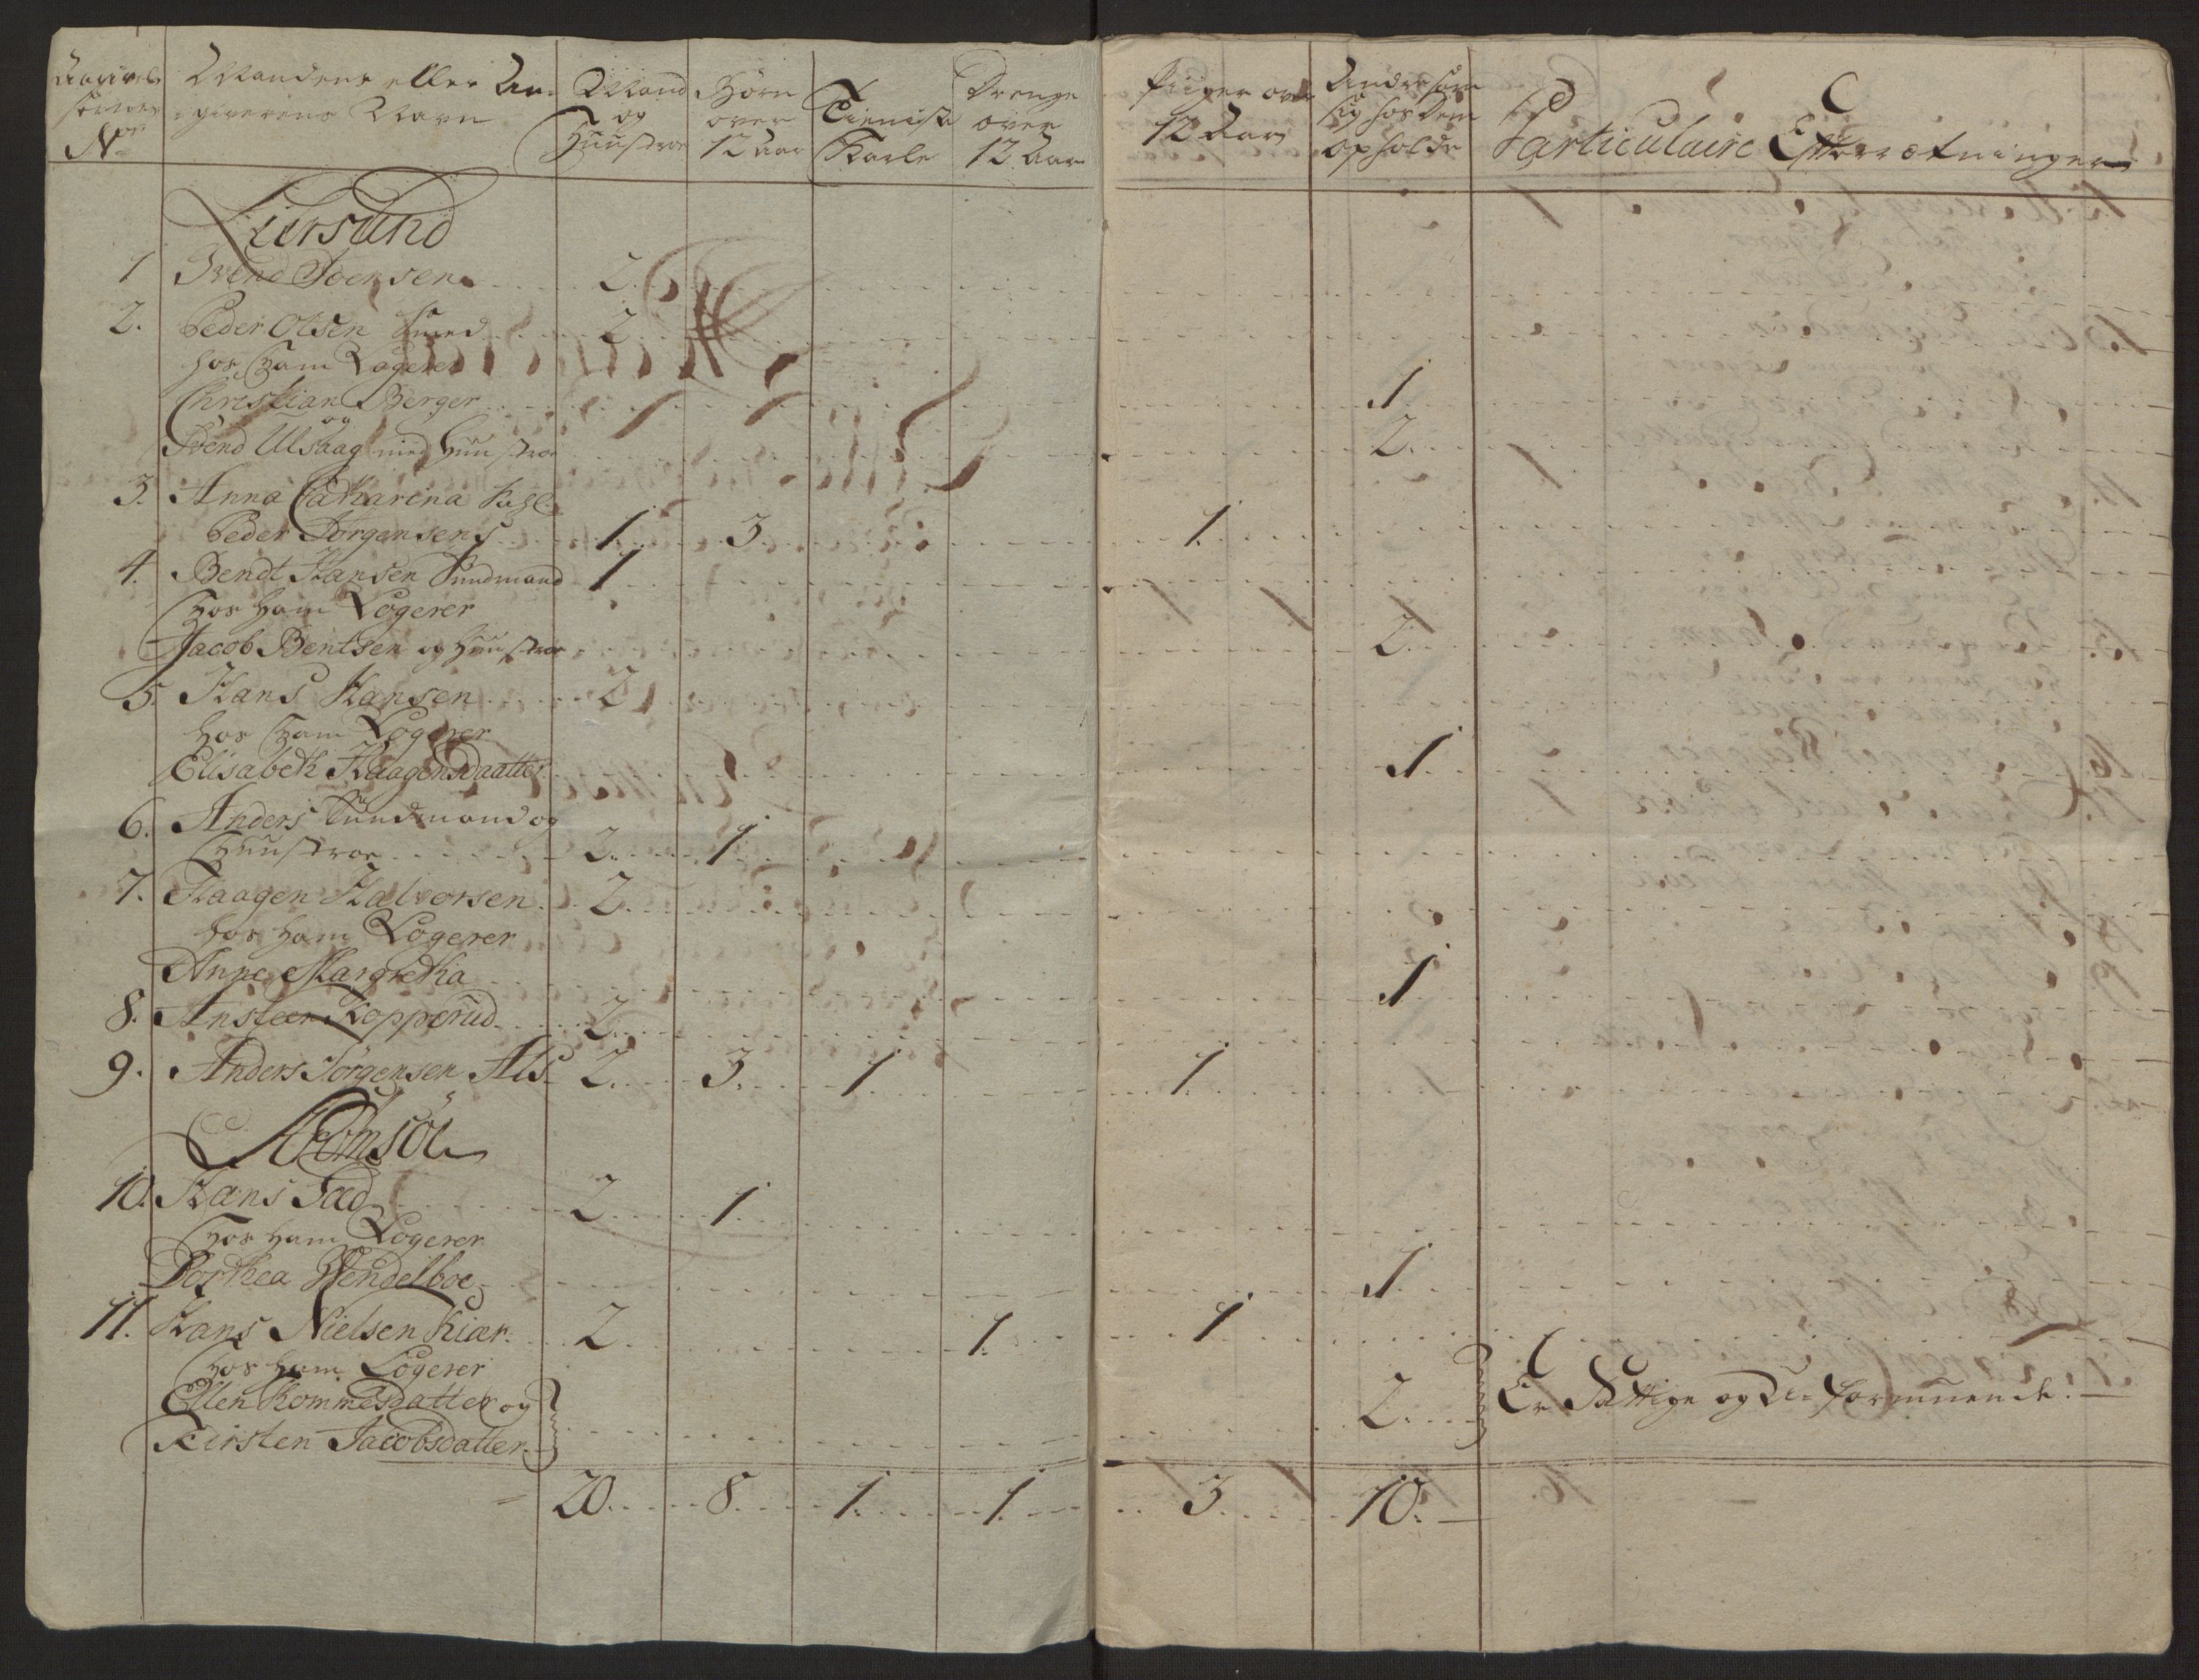 Mandens eller An-
giverens Navn
Mand
og
Huustroe
Børn
over
12 Aar
Tieniste
Karle
Drenge
over
12 Aar
Piiger over
12 Aar
Andre som
sig hos dem
opholde
Particulaire Efterretninger
No
Liersund
1 Svend Joensen 2.
2. Peder Olsen Smed 2
hos Ham Logerer
Christian Berger 1
og
Svend Ulshag med Huustroe 2.
3. Anna Catharina Sahl.
Peder Jörgensens 1. 3. 1.
4. Bendt Hansen Sundmand 1
Hos ham Logerer
Jacob Bentsen og Huustroe 2.
5. Hans Hansen 2
hos Ham Logerer
Elisabeth Haagensdaatter 1.
6. Anders Sundmand og
Huustroe 2. 1.
7. Haagen Halvorsen 2.
hos ham Logerer
Anne Margretha 1
8. Ansteen Kopperud 2.
9. Anders Jörgensen Als 2. 3. 1 1.
10. Hans Fæd 2. 1.
Hos ham Logerer
Dorthea Wendelboe 1.
11. Hans Nielsen Kiær 2. 1. 1
Hos ham Logerer
Ellen Rommesdatter og
Kirsten Jacobsdatter 2. Er Fattige og Uformuende.
20. 8. 1. 1. 3. 10.